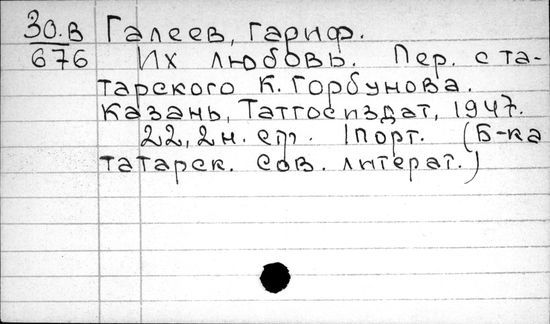 30.В Галеев, Гариф.
676 Их любовь. Пер. с та-
тарского К. Горбунова.
Казань, Татгосиздат, 1947.
22, 2 н. стр. 1 порт. (Б-ка
татарск. сов. литерат.)